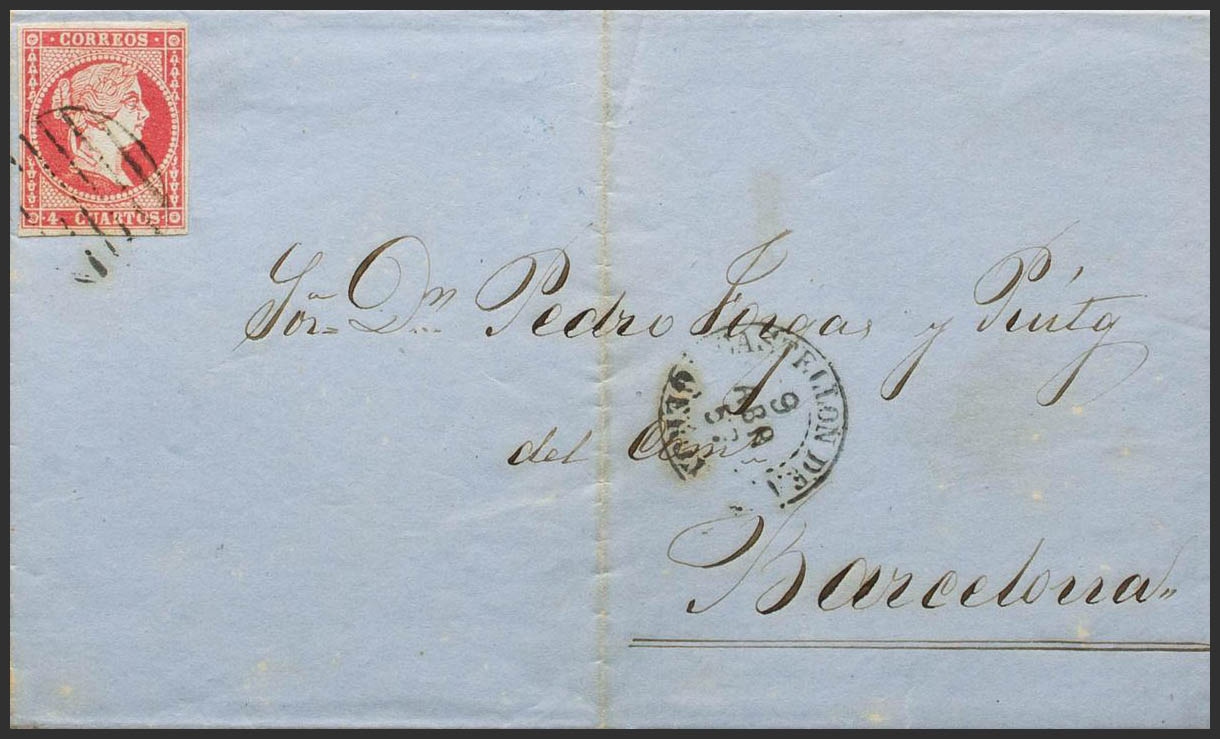 · CORREOS ·
· 4 CUARTOS ·
Sor Dn Pedro Forgas y Puitg
CASTELLON DE
9
ABR
del Como
Barcelona